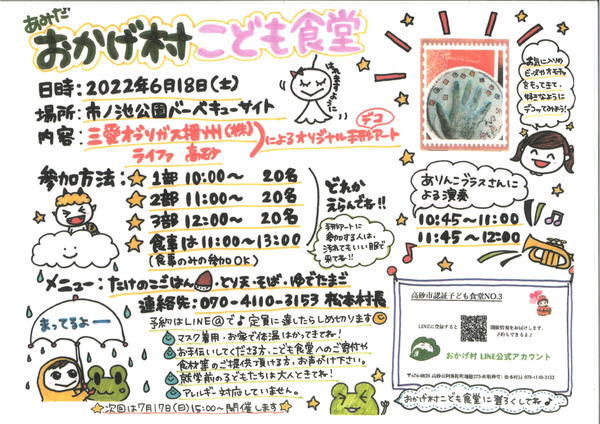 あみだ
おかげ村 こども食堂
日時:2022年6月18日(土)
場所:市ノ池公園バーベキューサイト
内容:三愛オブリガス播州(株)
ライファ 高砂
によるオリジナル手形アート
デコ
はれますように
お気に入りの
ビーズやカモチャ
をもってきて、
好きなように
デコッてみよう!
参加方法:★1部 10:00〜 20名
★2部 11:00〜 20名
★3部 12:00〜 20名
★食事は11:00〜13:00
(食事のみの参加OK)
どれか
えらんでね!!
手形アートに
参加する人は、
汚れてもいい服で
来てね!!
ありんこブラスさんに
よる演奏
10:45〜11:00
11:45〜12:00
メニュー:たけのこごはん・とり天・そば・ゆでたまご
連絡先:070-4110-3153 松本村長
まってるよー
予約はLINE@で♪定員に達したらしめ切ります
マスク着用・お家で体温はかってきてね!
お手伝いしてくださる方、こども食堂へのご寄付や
食材等のご提供頂ける方、お声がけ下さい。
就学前の子どもたちは大人ときてね!
アレルギー対応していません。
☆次回は7月17日(日)15:00〜開催します☆
高砂市認証子ども食堂NO.3
LINEに登録すると
開催情報をお届けします。
予約もできるよ♪
おかげ村 LINE公式アカウント
松本村長 070-4110-3153
おかげ村こども食堂に習ろくしてね♪